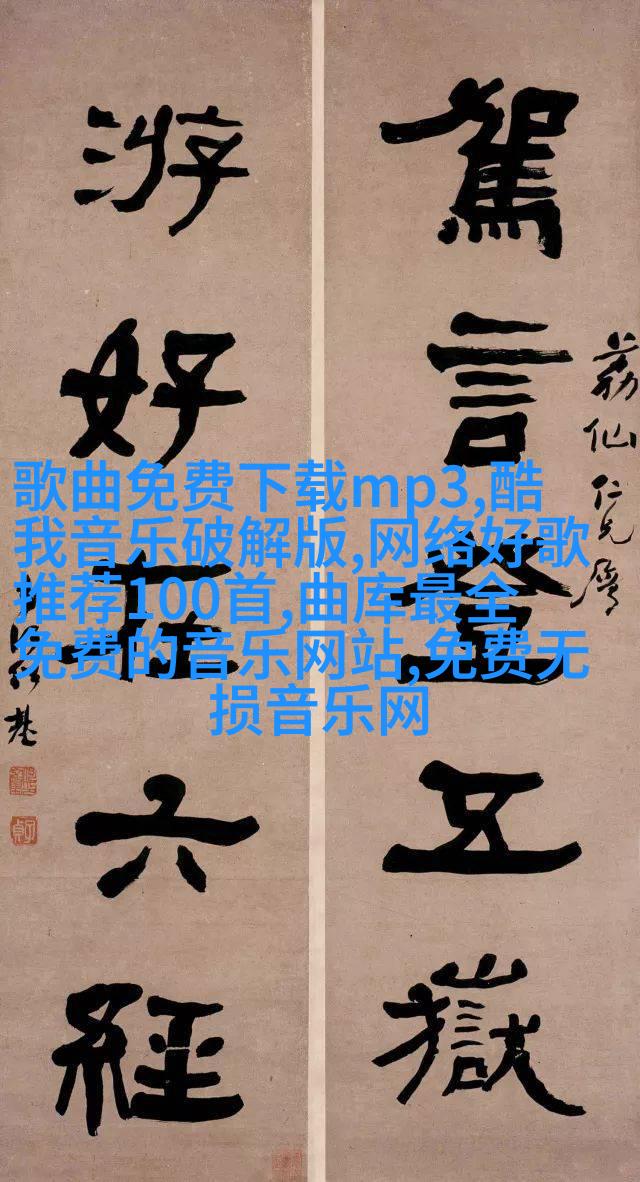 歌曲免费下载mp3,酷
我音乐破解版,网络好歌
推荐100首,曲库最全
免费的音乐网站,免费无
损音乐网
荔仙仁兄屬
駕言登五嶽
游好在六經